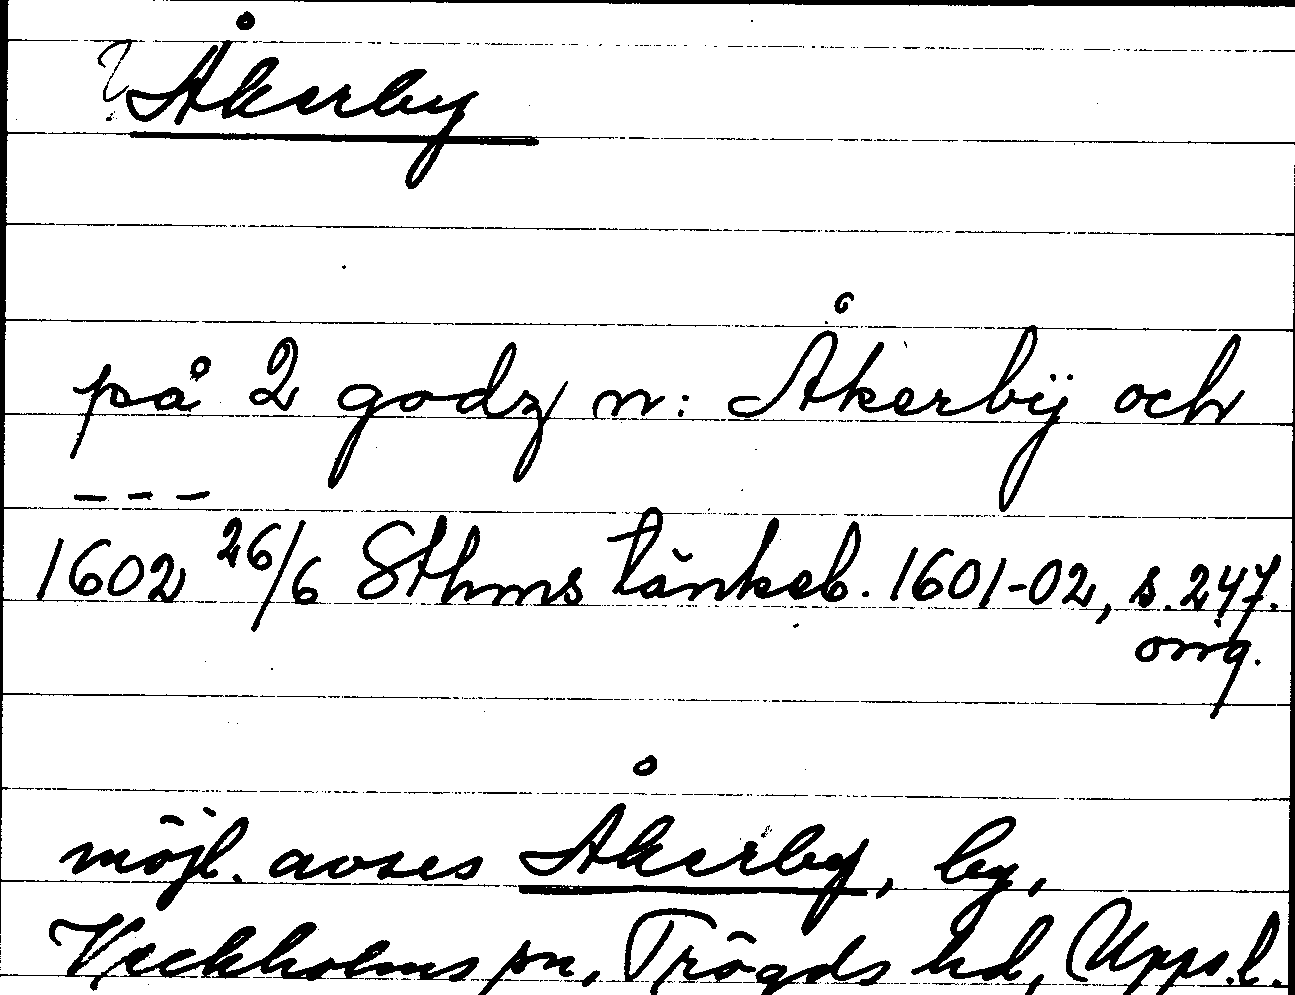 ? Åkerby
på 2 godz n: Åkerbÿ och
---
1602 26/6 Sthms tänkeb. 1601-02, s. 247.
orig.
möjl. avses Åkerby, by,
Veckholms sn, Trögds hd, Upps. l.